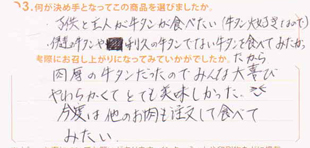 3.何が決め手となってこの商品を選びましたか。
・子供と主人が牛タンが食べたい(牛タン大好きなので)
牛タンや 利久の牛タンでない牛タンを食べてみたか
実際にお召し上がりになってみていかがでしたか。 ったから
肉厚の牛タンだったのでみんな大喜び
やわらかくてとても美味しかった。
今度は他のお肉も注文して食べて
みたい。